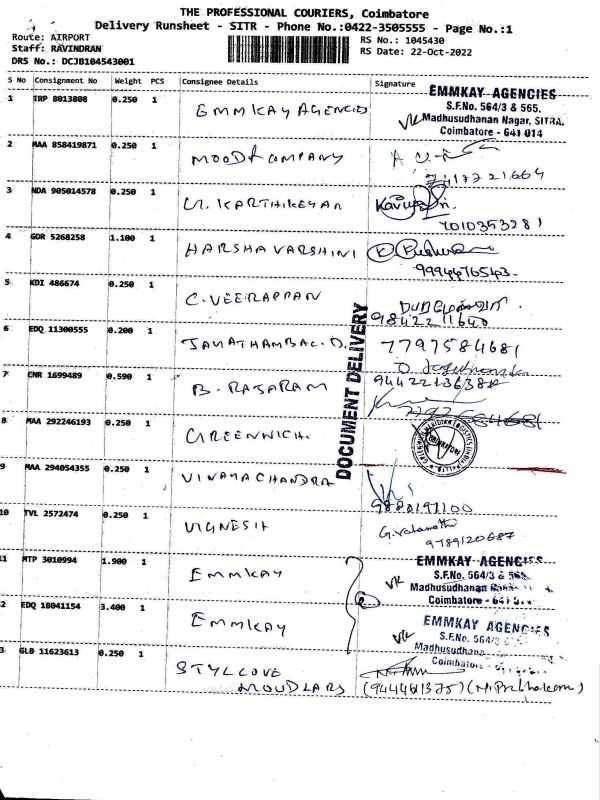 THE PROFESSIONAL COURIERS, Coimbatore
Delivery Runsheet - SITR - Phone No.:0422-3505555 - Page No.:1
Route: AIRPORT RS No.: 1045430
Staff: RAVINDRAN RS Date: 22-Oct-2022
DRS No.: DCJB104543001
S No Consignment No Weight PCS Consignee Details Signature
1 TRP 8013808 0.250 1 EMMKAY AGENCIES
EMMKAY AGENCIES
S.F.No. 564/3 & 565,
Madhusudhanan Nagar, SITRA,
Coimbatore - 641 014
2 MAA 858419871 0.250 1 MOOD & COMPANY
7417721664
3 NDA 905014578 0.250 1 KARTHIKEYAN
7010353281
4 GDR 5268258 1.100 1 HARSHAVARSHINI
9994476543
5 KDI 486674 0.250 1 C. VEERAPPAN
9842211640
6 EDQ 11300555 0.200 1 JAYATHAMBAL. D.
7797584681
7 CNR 1699489 0.590 1 B. RAJARAM
DOCUMENT DELIVERY
8 MAA 292246193 0.250 1 GREENWICH.
COIMBATORE
9 MAA 294054355 0.250 1 VINAYACHANDRA
9880197100
10 TVL 2572474 0.250 1 VIGNESH
9789120687
11 MTP 3010994 1.900 1 EMMKAY
EMMKAY AGENCIES
S.F.No. 564/3 & 565,
Madhusudhanan
Coimbatore - 641
2 EDQ 18041154 3.400 1 EMMKAY
EMMKAY AGENCIES
S.F.No. 564/
Madhusudhana
Coimbatore
3 GLB 11623613 0.250 1 STYLLOVE
MOUDLARS (944461375) (N. Prabhakaran)